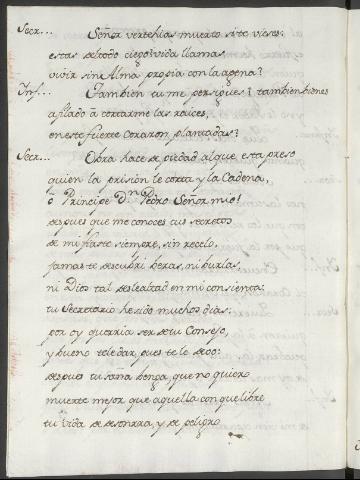 Secr... Señor verte hias muerto si te vieses:
estas de todo ciego? vida llamas
vivir sin Alma propia con la agena?
Inf... Tambien tu me persigues? tambien bienes
afilado à cortarme las raices,
en este fuerte Corazon plantadas?
Secr... Obra hace de piedad al que esta preso
quien la prision le corta y la Cadena,
ò Principe Dn Pedro Señor mio!
despues que me conoces tus secretos
de mi fiaste siempre, sin recelo,
jamas te descubri beras, ni burlas,
ni Dios tal deslealtad en mi consienta:
tu Secretario he sido muchos dias:
por oy querria ser de tu Consejo,
y bueno te le dar, pues te le doo:
despues tu saña benga, que no quiero
muerte mejor que aquella con que libre
tu vida de desonrra, y de peligro